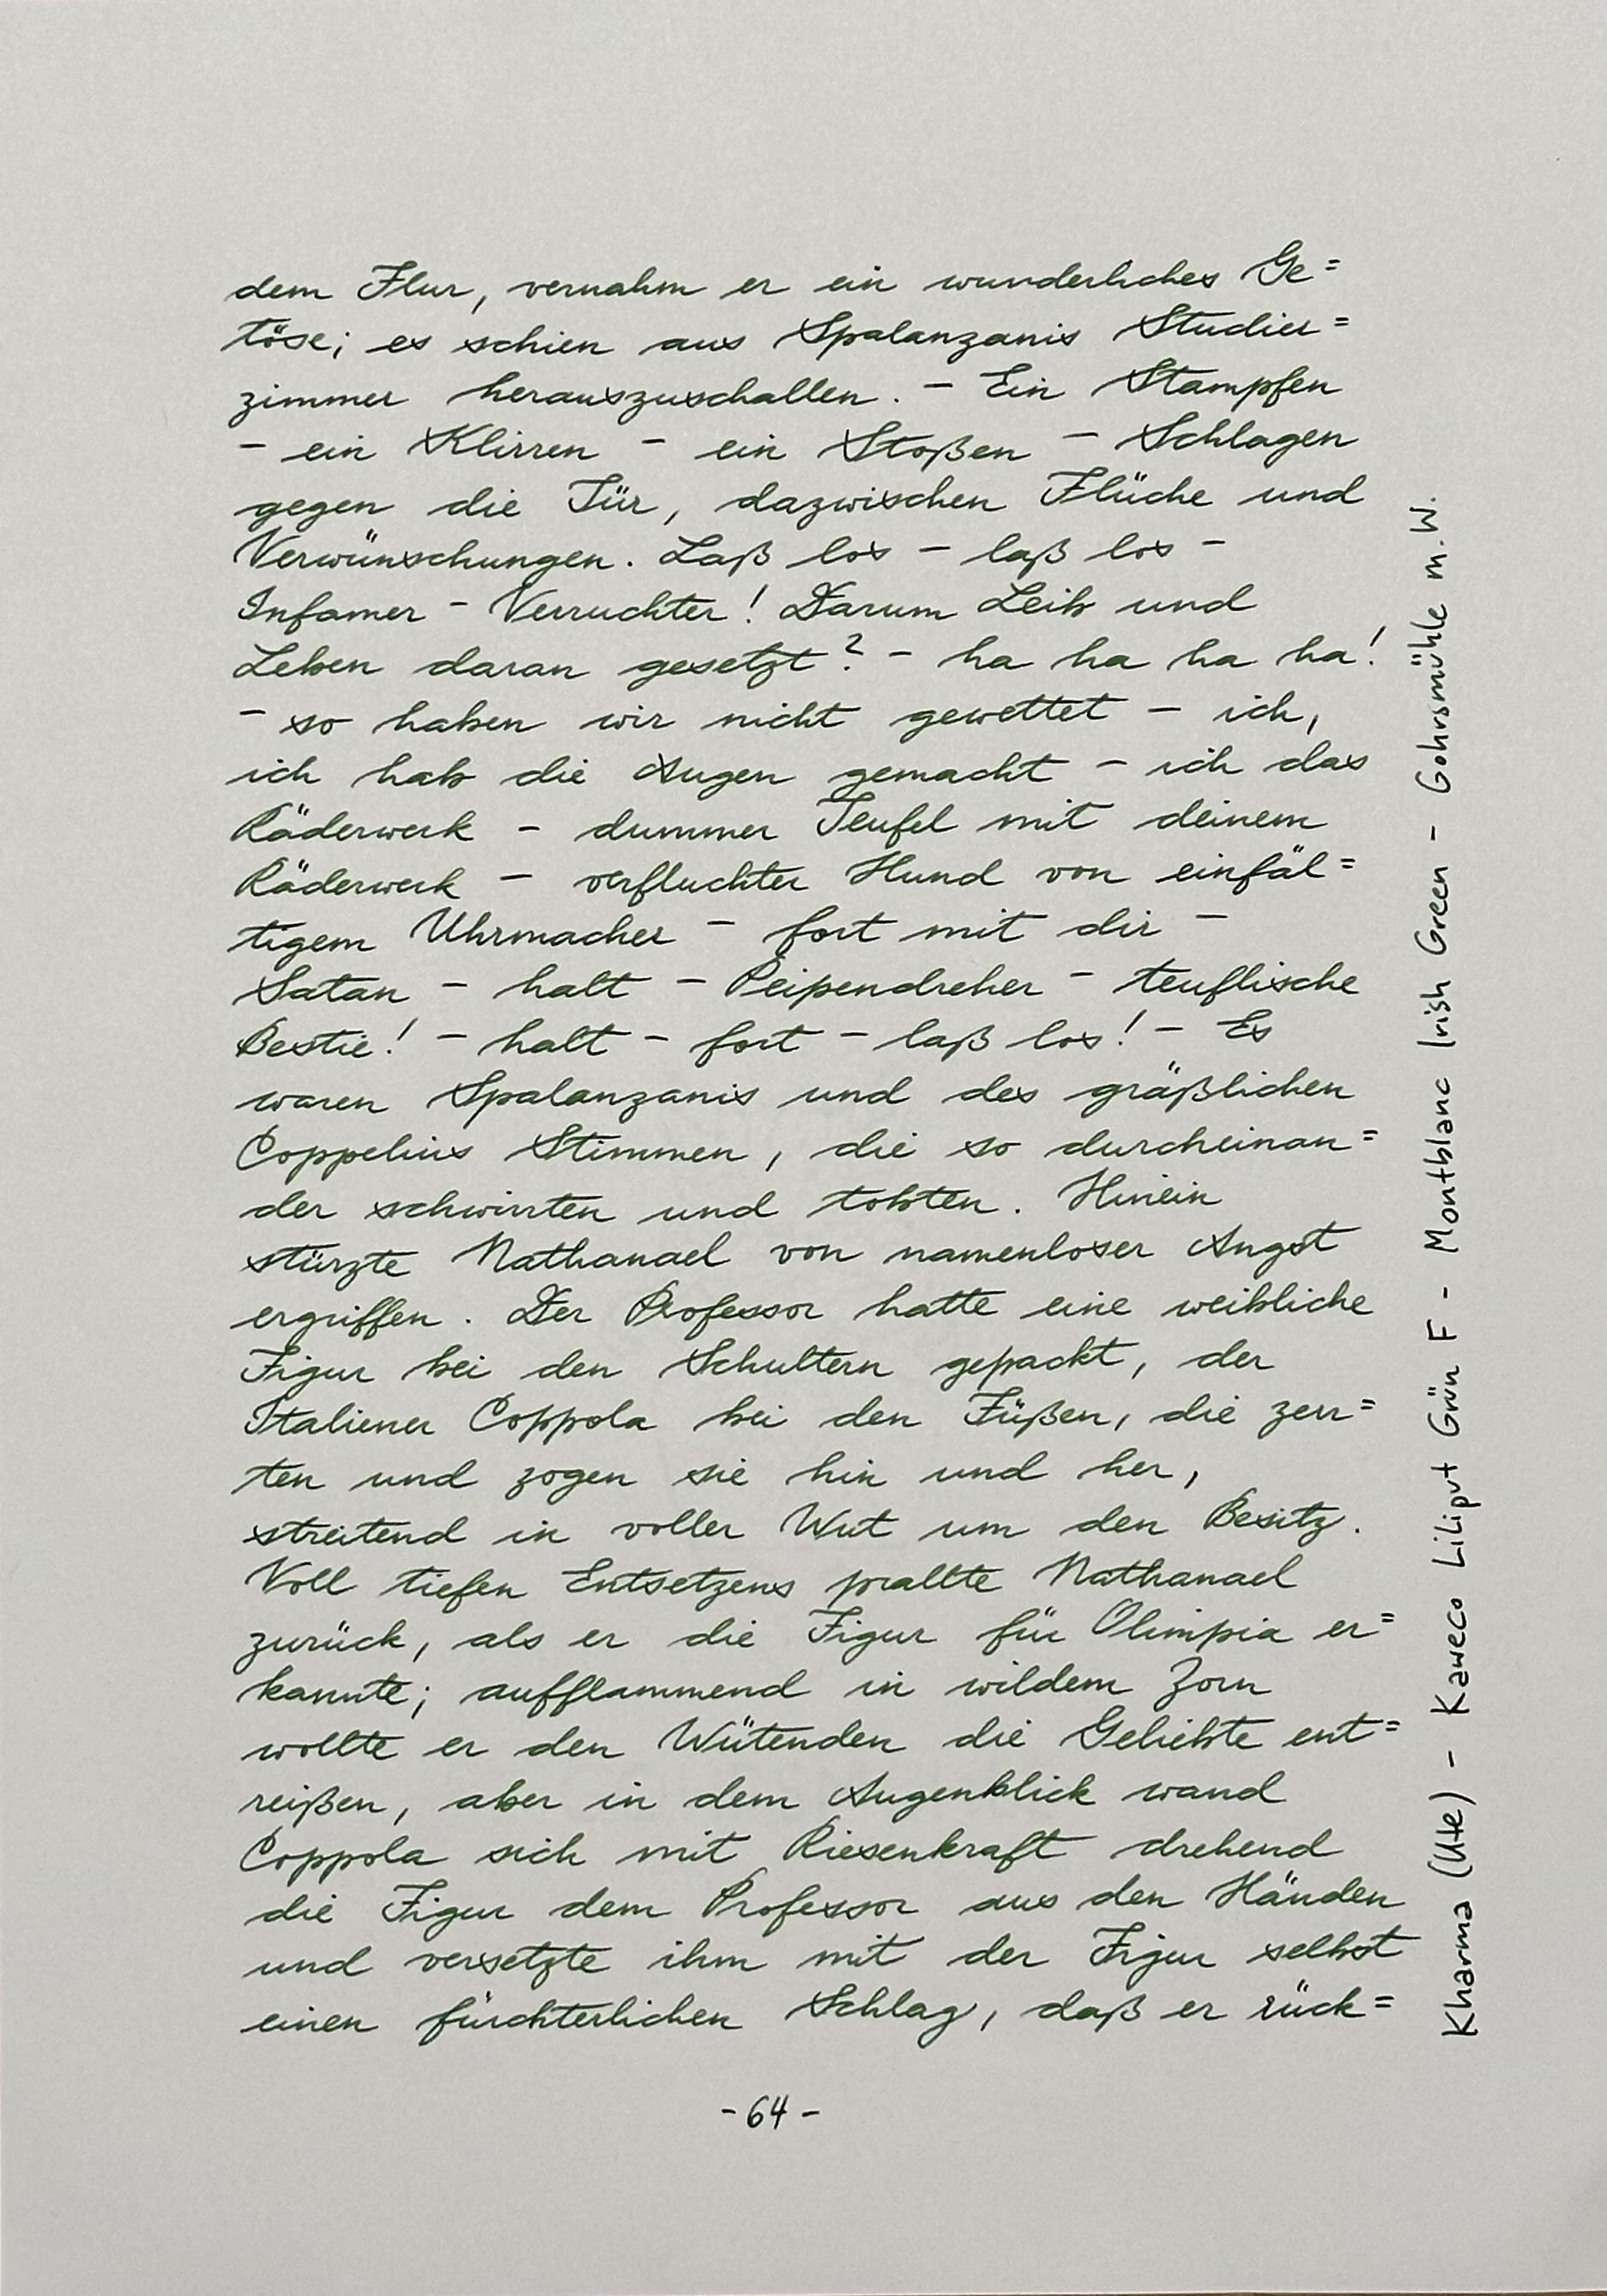 dem Flur, vernahm er ein wunderliches Ge=
töse; es schien aus Spalanzanis Studier=
zimmer herauszuschallen. – Ein Stampfen
– ein Klirren – ein Stoßen – Schlagen
gegen die Tür, dazwischen Flüche und
Verwünschungen. Laß los – laß los –
Infamer – Verruchter! Darum Leib und
Leben daran gesetzt? – ha ha ha ha!
– so haben wir nicht gewettet – ich,
ich hab die Augen gemacht – ich das
Räderwerk – dummer Teufel mit deinem
Räderwerk – verfluchter Hund von einfäl=
tigem Uhrmacher – fort mit dir –
Satan – halt – Peipendreher – teuflische
Bestie! – halt – fort – laß los! – Es
waren Spalanzanis und des gräßlichen
Coppelius Stimmen, die so durcheinan=
der schwirrten und tobten. Hinein
stürzte Nathanael von namenloser Angst
ergriffen. Der Professor hatte eine weibliche
Figur bei den Schultern gepackt, der
Italiener Coppola bei den Füßen, die zerr=
ten und zogen sie hin und her,
streitend in voller Wut um den Besitz.
Voll tiefen Entsetzens prallte Nathanael
zurück, als er die Figur für Olimpia er=
kannte; aufflammend in wildem Zorn
wollte er den Wütenden die Geliebte ent=
reißen, aber in dem Augenblick wand
Coppola sich mit Riesenkraft drehend
die Figur dem Professor aus den Händen
und versetzte ihm mit der Figur selbst
einen fürchterlichen Schlag, daß er rück=
- 64 -
Kharma (Ute) - Kaweco Liliput Grün F - Montblanc Irish Green - Gohrsmühle m.W.